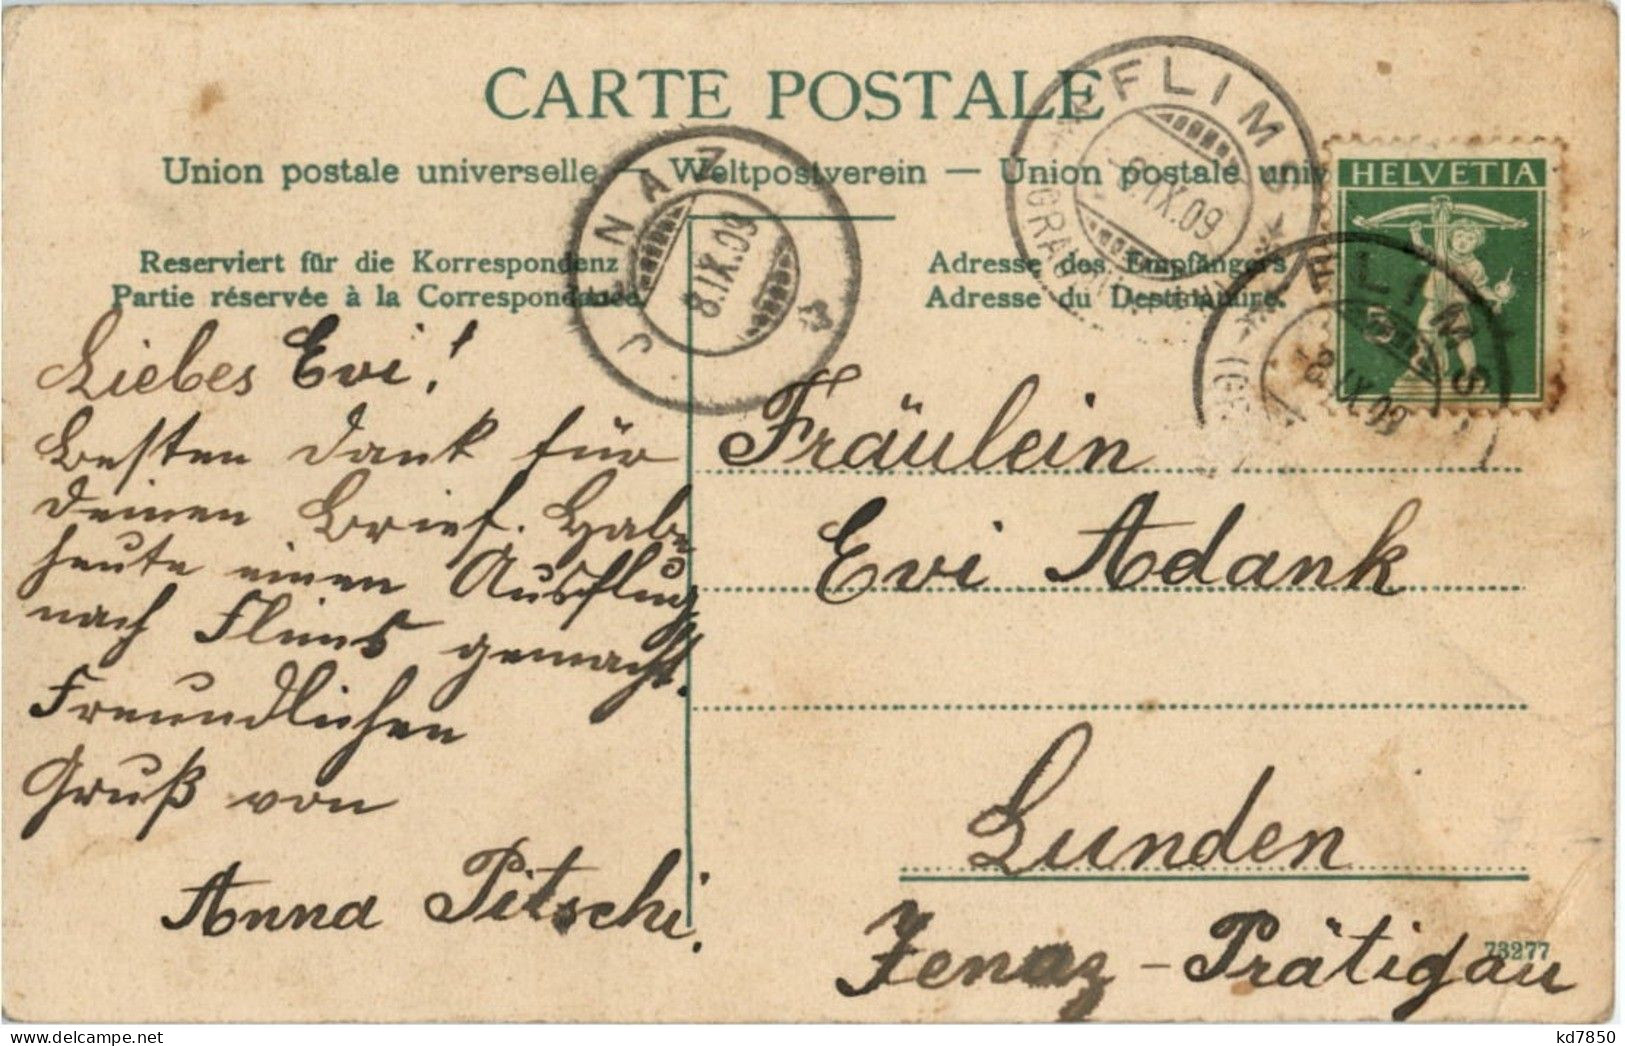 CARTE POSTALE
Union postale universelle — Weltpostverein — Union postale univ
Reserviert für die Korrespondenz
Partie réservée à la Correspondance
Adresse des Empfängers
Adresse du Destinataire.
FLIMS
8.IX.09
JENAZ
8.IX.09
HELVETIA
5
FLIMS
IX.09
Liebes Evi!
Besten Dank für
deinen Brief. Habe
heute einen Ausflug
nach Flims gemacht.
Freundlichen
Gruß von
Anna Pitschi.
Fräulein
Evi Adank
Lunden
Jenaz - Prätigau
73277
kd7850